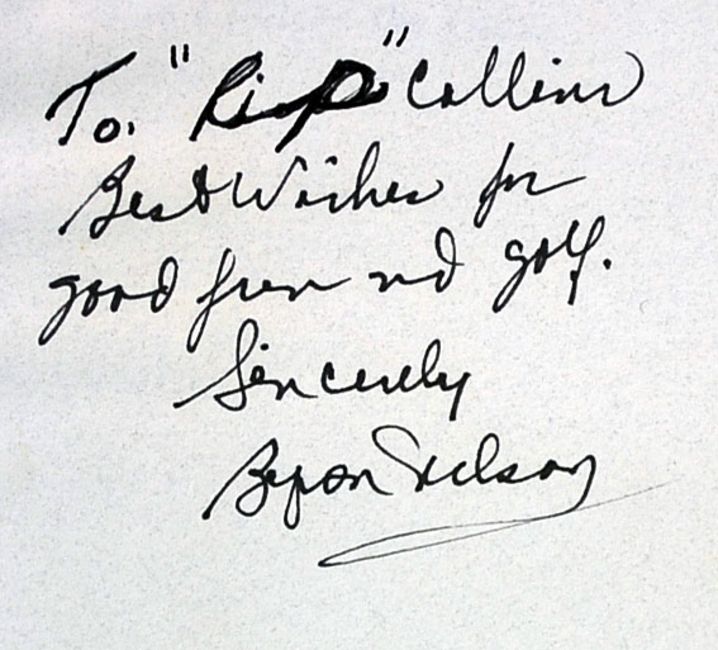 To. "Rip" Collins
Best Wishes for
good fun and golf.
Sincerely
Byron Nelson